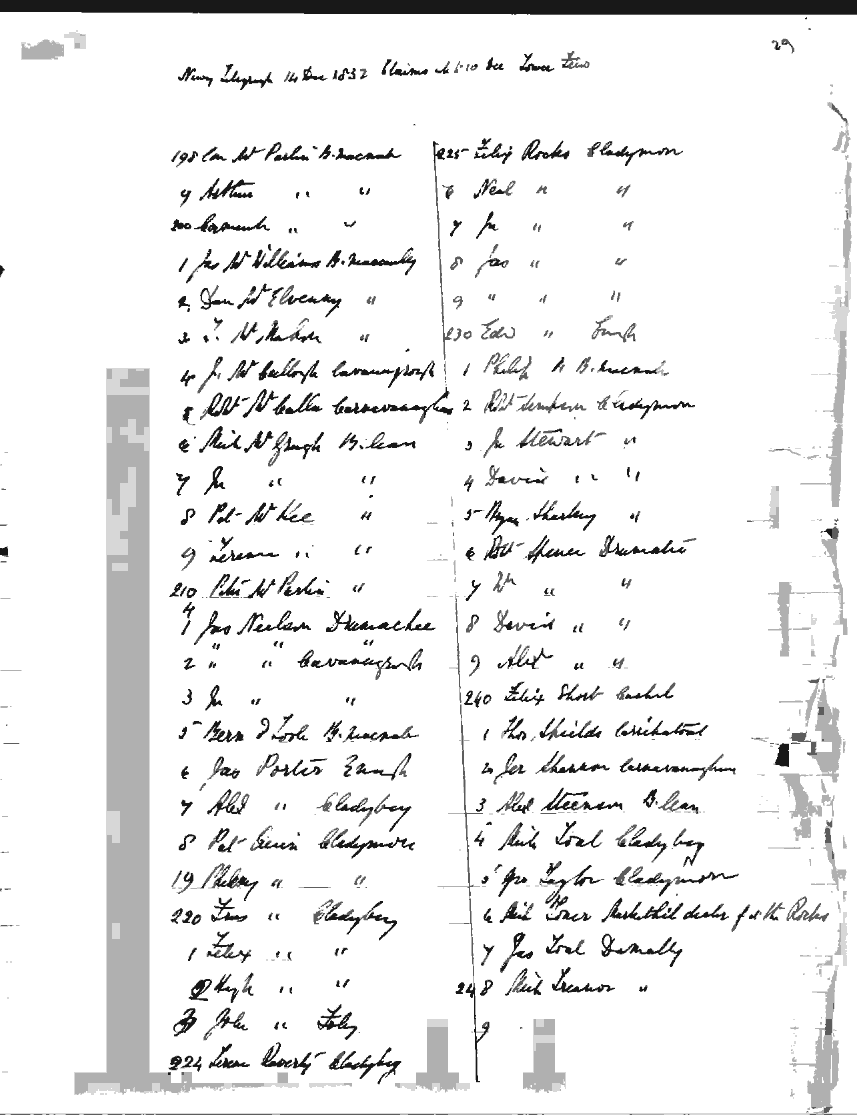 29
Newry Telegraph 14 Dec 1832 Claims at 5-10 Dec Lower Fews
198 Con Mc Parlin B.macnab
9 Arthur " "
200 Cormack " "
1 Jas Mc Williams B.macnally
2 Dan Mc Elvenny "
3 T. Mc Mahon "
4 J. Mc Cullogh Cavanagrogh
5 Robt Mc Calla Carnavanaghan
6 Mich Mc Grugh B.lean
7 Jn " "
8 Pat Mc Kee "
9 Terence " "
210 Peter Mc Parlin "
4
1 Jas Neilson Drumachee
2 " " Cavanagrogh
3 Jn " "
5 Bern O'Toole B.macnab
6 Jas Porter Enagh
7 Alex " Cladybeg
8 Pat Quin Cladymore
19 Phelemy " "
220 Frns " Cladybeg
1 Felix " "
2 Hugh " "
3 John " Foley
224 Terence Raverty Cladybeg
225 Felix Rocks Cladymon
6 Neal " "
7 Jn " "
8 Jas " "
9 " " "
230 Edw " Enagh
1 Philip R B.macnab
2 Robt Simpson Cladymon
3 Jn Stewart "
4 David " "
5 Bryan Sharkey "
6 Robt Spence Drumatee
7 Wm " "
8 David " "
9 Alex " "
240 Felix Short Cashel
1 Thos. Shields Corrihatoal
2 Jer Shannon Carnavanaghan
3 Alex Steenson B.lean
4 Mich Toal Cladybeg
5 Geo Taylor Cladymon
6 Mich Toner Markethill dealer for the Rocks
7 Jas Toal Damally
248 Mich Treanor "
9